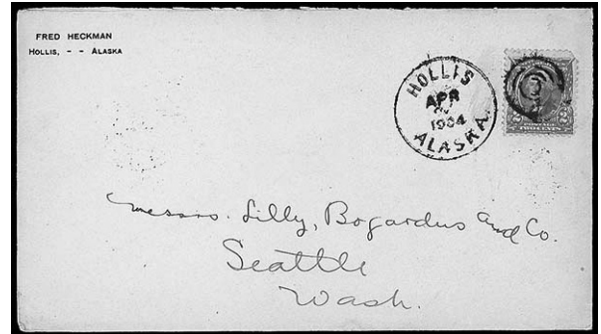 FRED HECKMAN
HOLLIS, - - ALASKA
HOLLIS
APR
1904
ALASKA.
2 2
TWO CENTS
Messrs. Lilly, Bogardus and Co.
Seattle
Wash.